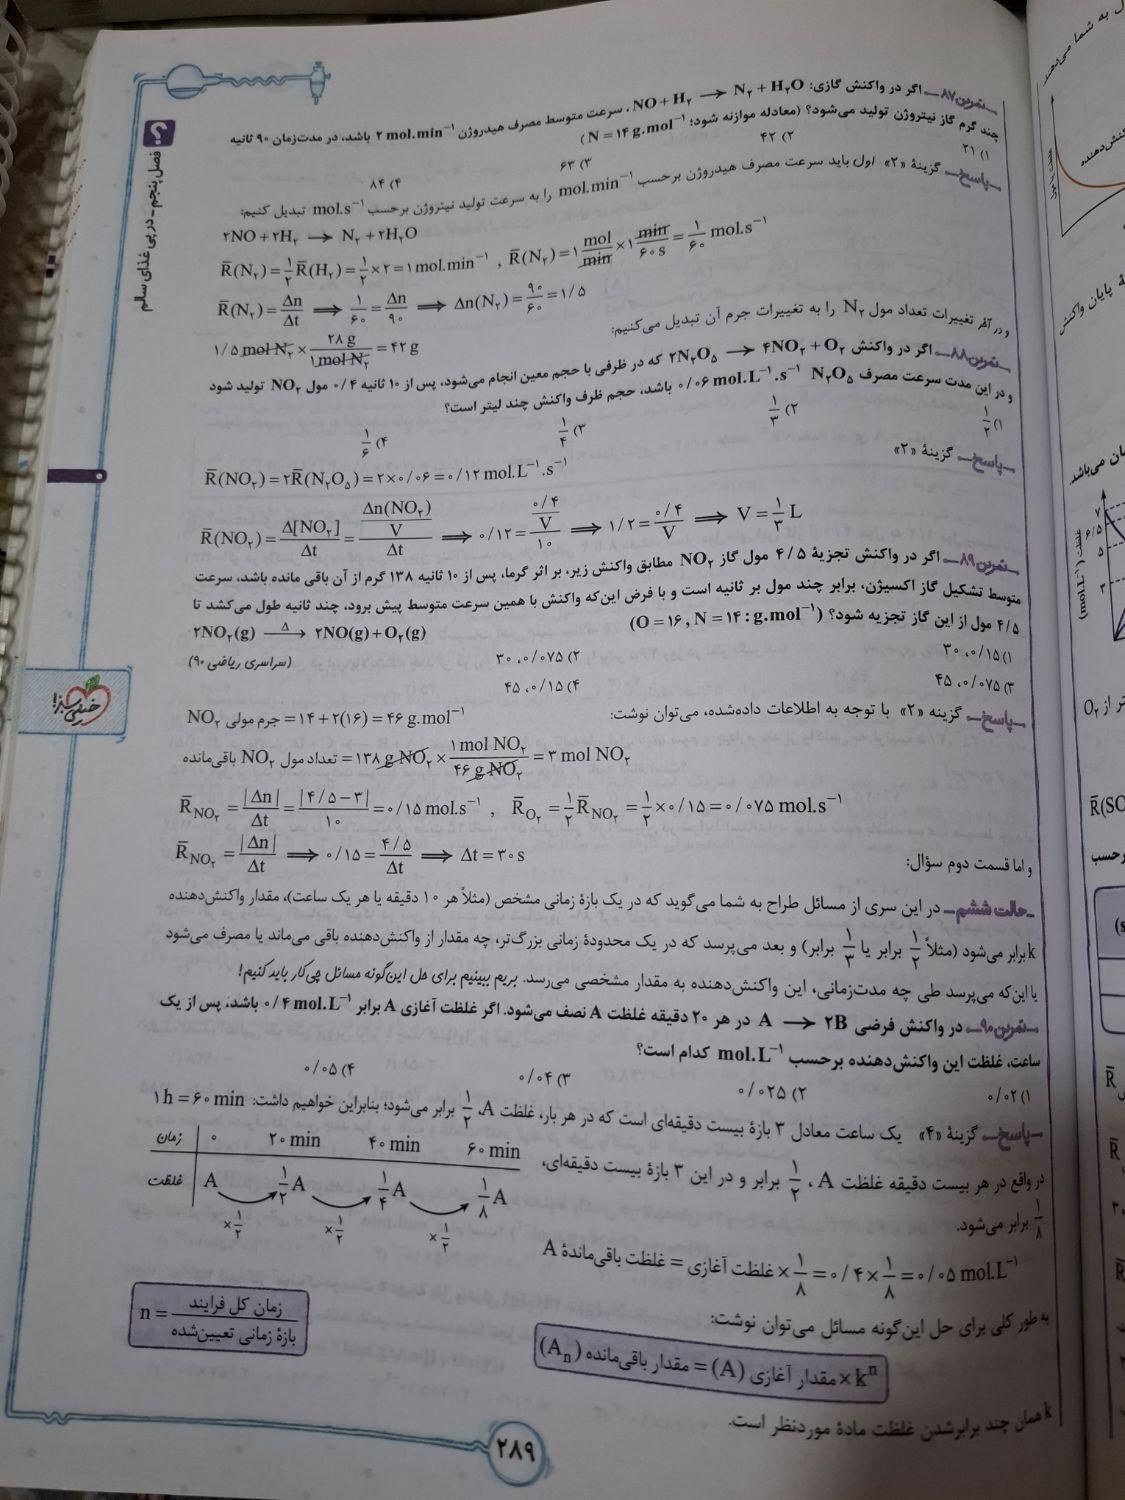 تمرین ۸۷ـ اگر در واکنش گازی: NO + H₂ ⟶ N₂ + H₂O ، سرعت متوسط مصرف هیدروژن ۲ mol.min⁻¹ باشد، در مدت‌زمان ۹۰ ثانیه
چند گرم گاز نیتروژن تولید می‌شود؟ (معادله موازنه شود؛ N = ۱۴ g.mol⁻¹)
۱) ۲۱
۲) ۴۲
۳) ۶۳
۴) ۸۴
پاسخ ـ گزینهٔ «۲» اول باید سرعت مصرف هیدروژن برحسب mol.min⁻¹ را به سرعت تولید نیتروژن برحسب mol.s⁻¹ تبدیل کنیم:
۲NO + ۲H₂ ⟶ N₂ + ۲H₂O
R̄(N₂) = ۱/۲ R̄(H₂) = ۱/۲ × ۲ = ۱ mol.min⁻¹ , R̄(N₂) = ۱ mol/min × ۱ min/۶۰ s = ۱/۶۰ mol.s⁻¹
R̄(N₂) = Δn/Δt ⟹ ۱/۶۰ = Δn/۹۰ ⟹ Δn(N₂) = ۹۰/۶۰ = ۱/۵
و در آخر تغییرات تعداد مول N₂ را به تغییرات جرم آن تبدیل می‌کنیم:
۱/۵ mol N₂ × ۲۸ g/۱ mol N₂ = ۴۲ g
تمرین ۸۸ـ اگر در واکنش ۲N₂O₅ ⟶ ۴NO₂ + O₂ که در ظرفی با حجم معین انجام می‌شود، پس از ۱۰ ثانیه ۰/۴ مول NO₂ تولید شود
و در این مدت سرعت مصرف N₂O₅ ۰/۰۶ mol.L⁻¹.s⁻¹ باشد، حجم ظرف واکنش چند لیتر است؟
۱) ۱/۲
۲) ۱/۳
۳) ۱/۴
۴) ۱/۶
پاسخ ـ گزینهٔ «۲»
R̄(NO₂) = ۲R̄(N₂O₅) = ۲×۰/۰۶ = ۰/۱۲ mol.L⁻¹.s⁻¹
R̄(NO₂) = Δ[NO₂]/Δt = (Δn(NO₂)/V)/Δt ⟹ ۰/۱۲ = (۰/۴/V)/۱۰ ⟹ ۱/۲ = ۰/۴/V ⟹ V = ۱/۳ L
تمرین ۸۹ـ اگر در واکنش تجزیهٔ ۴/۵ مول گاز NO₂ مطابق واکنش زیر، بر اثر گرما، پس از ۱۰ ثانیه ۱۳۸ گرم از آن باقی مانده باشد، سرعت
متوسط تشکیل گاز اکسیژن، برابر چند مول بر ثانیه است و با فرض این‌که واکنش با همین سرعت متوسط پیش برود، چند ثانیه طول می‌کشد تا
۴/۵ مول از این گاز تجزیه شود؟ (O = ۱۶ , N = ۱۴ : g.mol⁻¹)
۲NO₂(g) ⟶ (Δ) ۲NO(g) + O₂(g)
۱) ۰/۱۵، ۳۰
۲) ۰/۰۷۵، ۳۰
(سراسری ریاضی ۹۰)
۳) ۰/۰۷۵، ۴۵
۴) ۰/۱۵، ۴۵
پاسخ ـ گزینه «۲» با توجه به اطلاعات داده‌شده، می‌توان نوشت:
جرم مولی NO₂ = ۱۴ + ۲(۱۶) = ۴۶ g.mol⁻¹
تعداد مول NO₂ باقی‌مانده = ۱۳۸ g NO₂ × ۱ mol NO₂/۴۶ g NO₂ = ۳ mol NO₂
R̄NO₂ = |Δn|/Δt = |۴/۵ − ۳|/۱۰ = ۰/۱۵ mol.s⁻¹ , R̄O₂ = ۱/۲ R̄NO₂ = ۱/۲ × ۰/۱۵ = ۰/۰۷۵ mol.s⁻¹
و اما قسمت دوم سؤال:
R̄NO₂ = |Δn|/Δt ⟹ ۰/۱۵ = ۴/۵/Δt ⟹ Δt = ۳۰ s
حالت ششم ـ در این سری از مسائل طراح به شما می‌گوید که در یک بازهٔ زمانی مشخص (مثلاً هر ۱۰ دقیقه یا هر یک ساعت)، مقدار واکنش‌دهنده
k برابر می‌شود (مثلاً ۱/۲ برابر یا ۱/۳ برابر) و بعد می‌پرسد که در یک محدودهٔ زمانی بزرگ‌تر، چه مقدار از واکنش‌دهنده باقی می‌ماند یا مصرف می‌شود
یا این‌که می‌پرسد طی چه مدت‌زمانی، این واکنش‌دهنده به مقدار مشخصی می‌رسد. بریم ببینیم برای حل این‌گونه مسائل چی‌کار باید کنیم!
تمرین ۹۰ـ در واکنش فرضی A ⟶ ۲B در هر ۲۰ دقیقه غلظت A نصف می‌شود. اگر غلظت آغازی A برابر ۰/۴ mol.L⁻¹ باشد، پس از یک
ساعت، غلظت این واکنش‌دهنده برحسب mol.L⁻¹ کدام است؟
۱) ۰/۰۲
۲) ۰/۰۲۵
۳) ۰/۰۴
۴) ۰/۰۵
پاسخ ـ گزینهٔ «۴» یک ساعت معادل ۳ بازهٔ بیست دقیقه‌ای است که در هر بار، غلظت A، ۱/۲ برابر می‌شود؛ بنابراین خواهیم داشت: ۱ h = ۶۰ min
در واقع در هر بیست دقیقه غلظت A ، ۱/۲ برابر و در این ۳ بازهٔ بیست دقیقه‌ای،
۱/۸ برابر می‌شود.
زمان ۰ ۲۰ min ۴۰ min ۶۰ min
غلظت A ۱/۲ A ۱/۴ A ۱/۸ A
×۱/۲ ×۱/۲ ×۱/۲
غلظت باقی‌ماندهٔ A = غلظت آغازی × ۱/۸ = ۰/۴ × ۱/۸ = ۰/۰۵ mol.L⁻¹
به طور کلی برای حل این‌گونه مسائل می‌توان نوشت:
مقدار باقی‌مانده (Aₙ) = مقدار آغازی (A) × kⁿ
n = زمان کل فرایند / بازهٔ زمانی تعیین‌شده
k همان چند برابرشدن غلظت مادهٔ موردنظر است.
۲۸۹
فصل پنجم ـ در پی غذای سالم
خیلی سبز